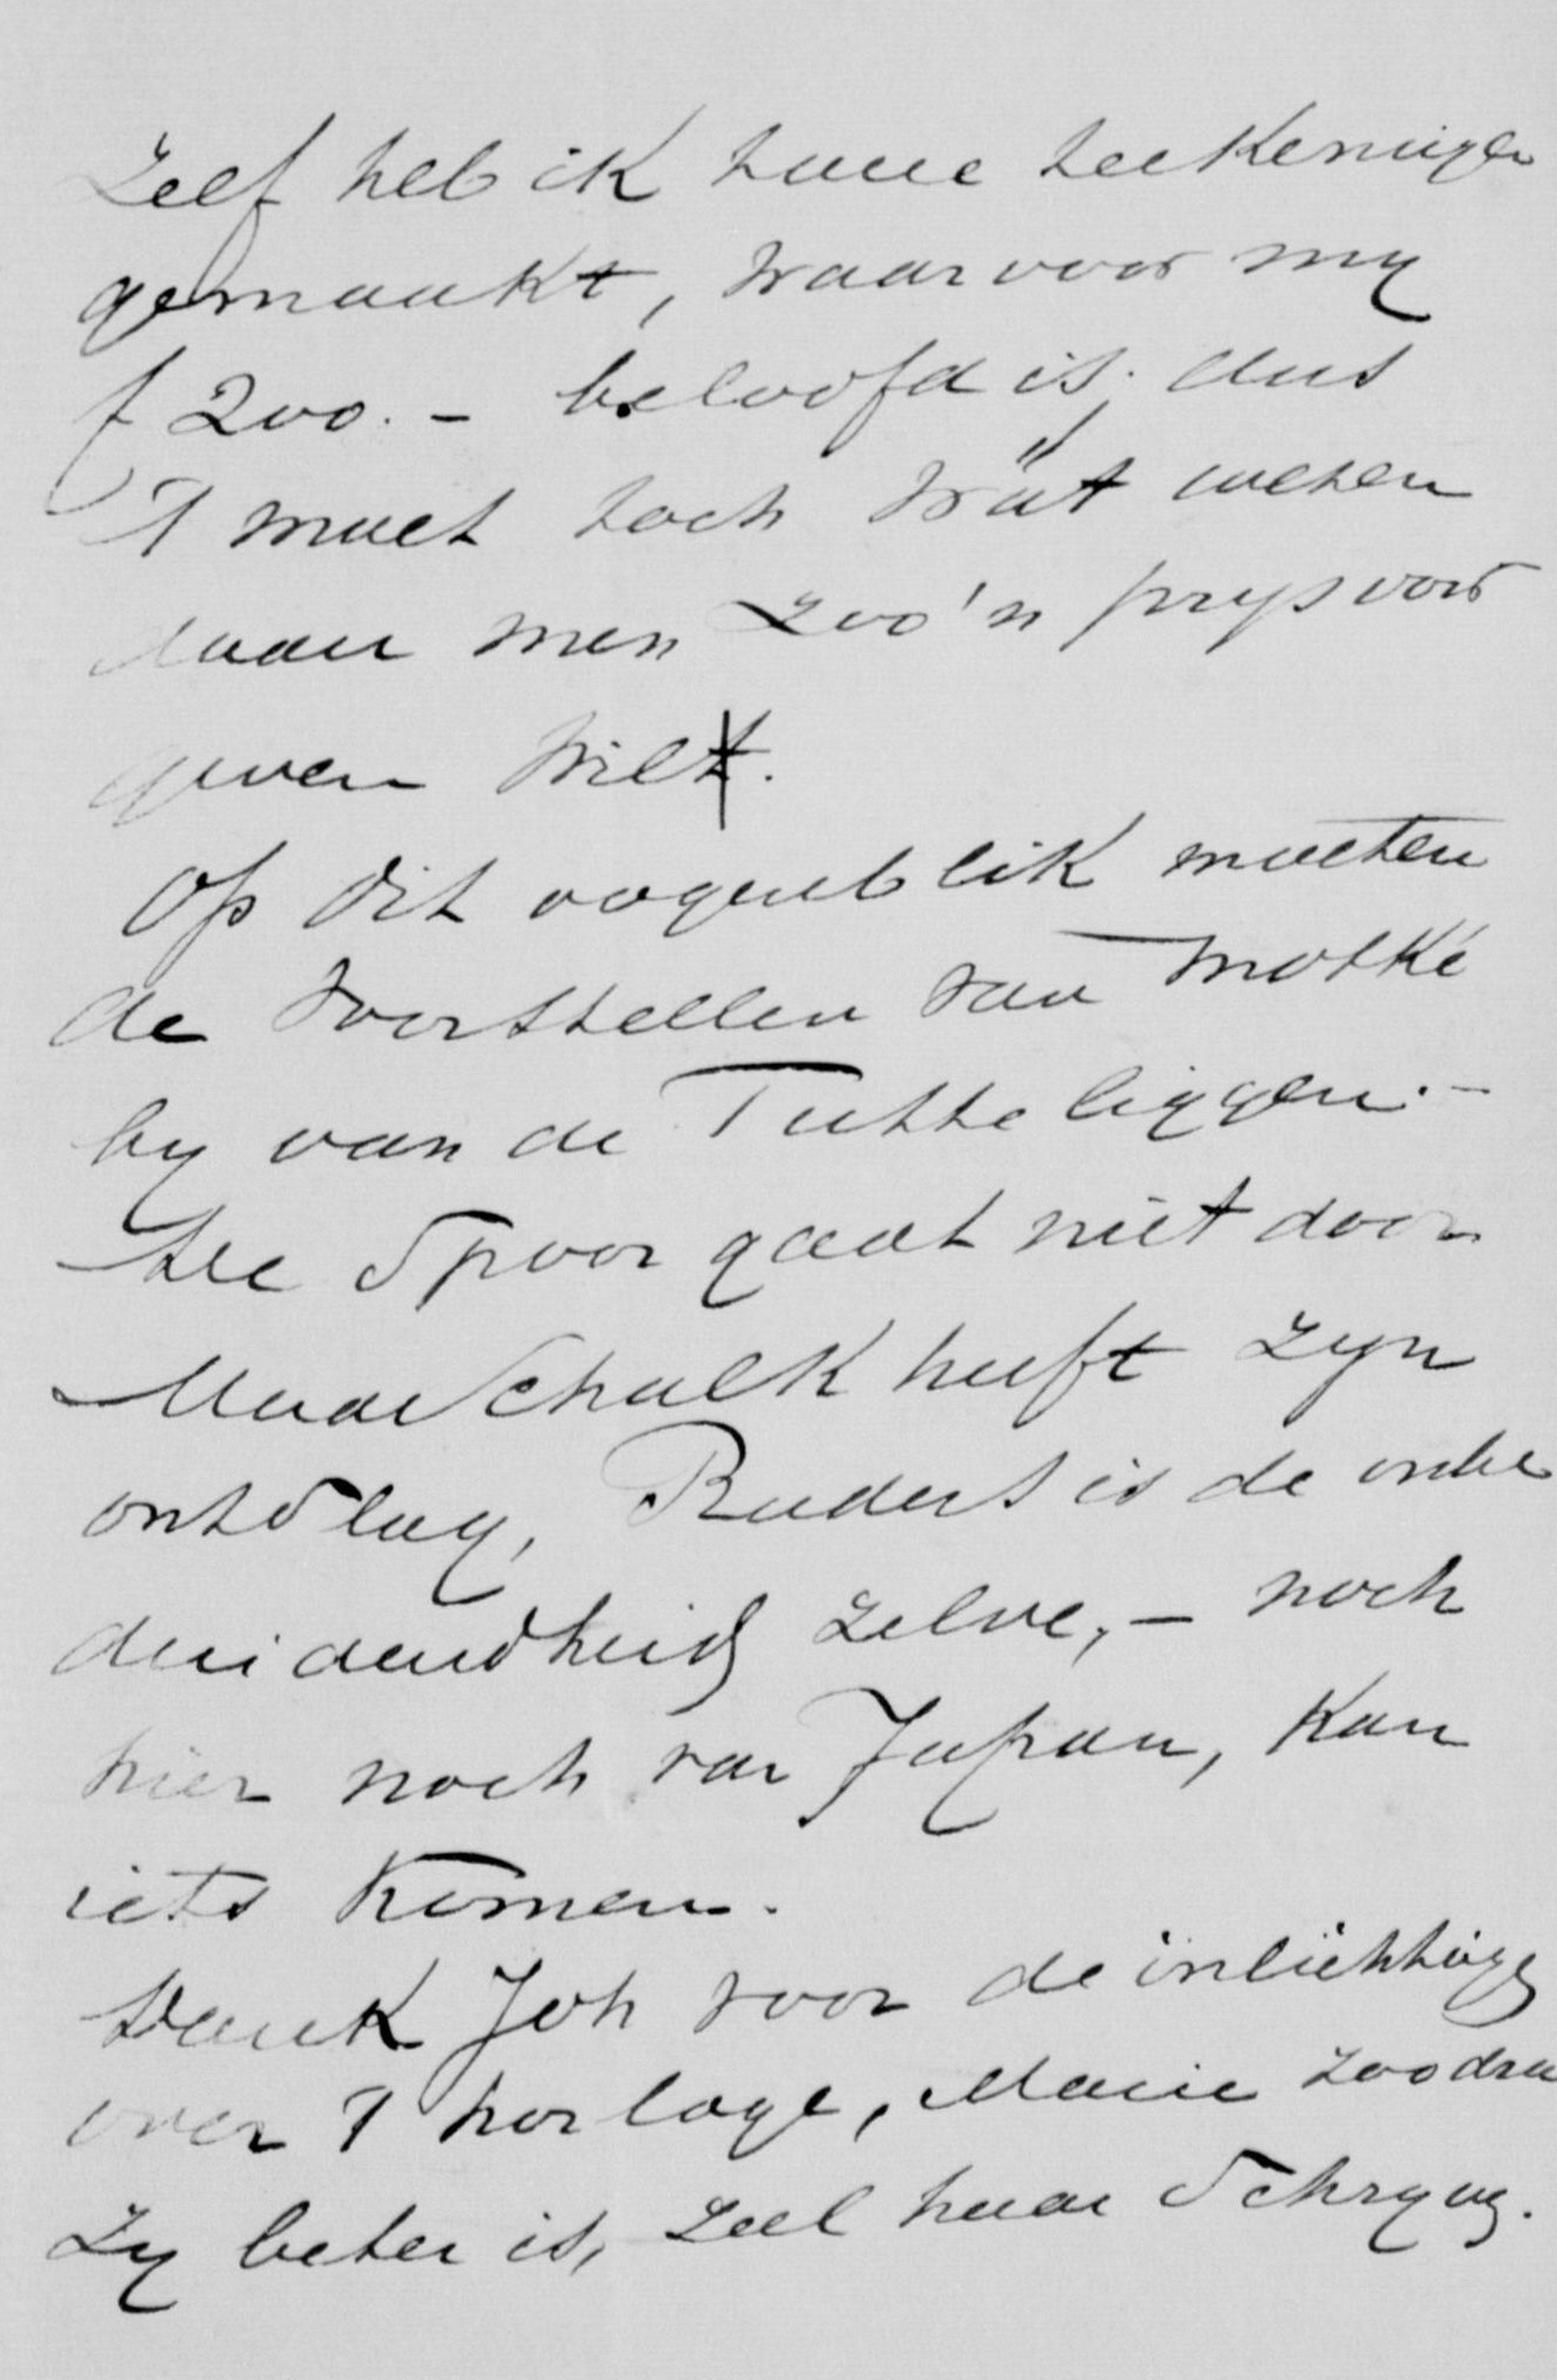 Zelf heb ik twee teekeningen
gemaakt, waarvoor my
f 200.- beloofd is; dus
't moet toch wat wezen
daar men zoo'n prys voor
geven wilt.
Op dit oogenblik moeten
de voorstellen van Motké
by van de Putte liggen.-
De Spoor gaat niet door
Maarschalk heeft zyn
ontslag, Raders is de onbe
duidendheid zelve,- noch
hier noch van Japan, kan
iets komen.
Dank Joh voor de inlichting
over 't horloge, Marie zoodra
zy beter is, zal haar schryvg.